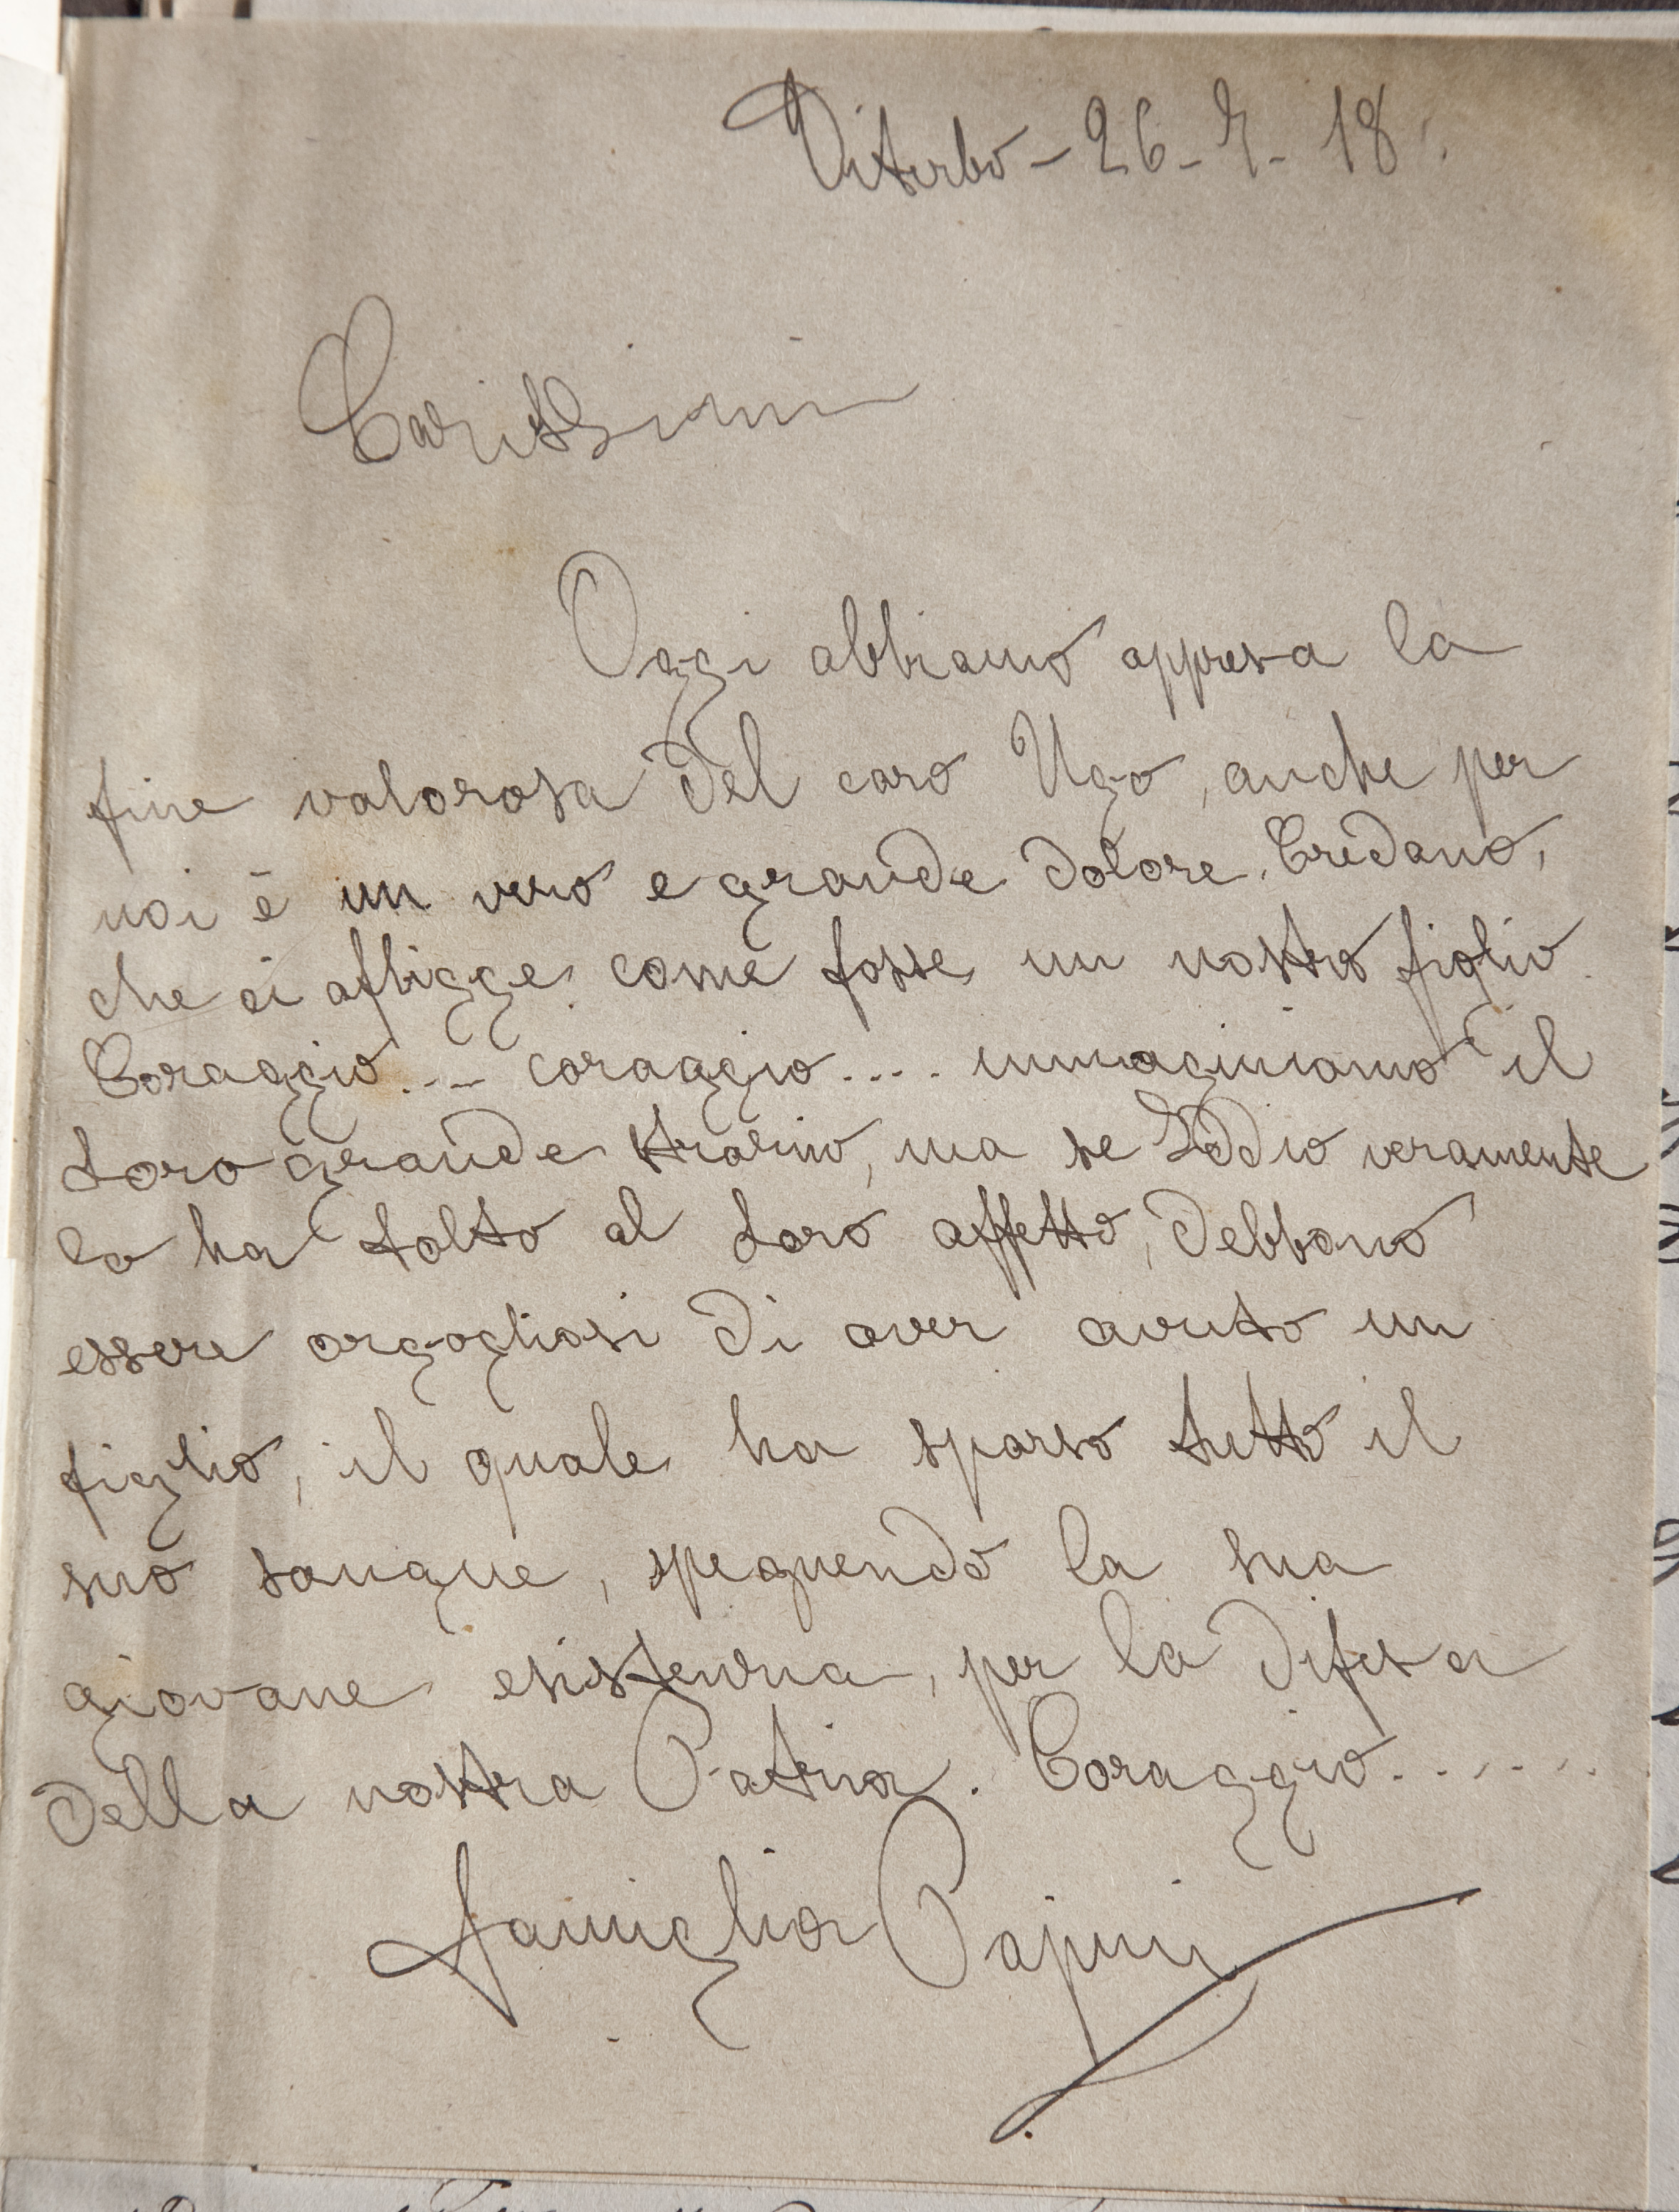 Viterbo - 26 - 7 - 18.
Carissimi
Oggi abbiamo appresa la
fine valorosa del caro Ugo, anche per
noi è un vero e grande dolore. Credano,
che ci afligge come fosse un nostro figlio.
Coraggio.... coraggio.... immaginiamo il
Loro grande strazio, ma se Iddio veramente
lo ha tolto al Loro affetto, debbono
essere orgogliosi di aver avuto un
figlio, il quale ha sparso tutto il
suo sangue, speguendo la sua
giovane esistenza, per la difesa
della nostra Patria. Coraggio......
Famiglia Papini